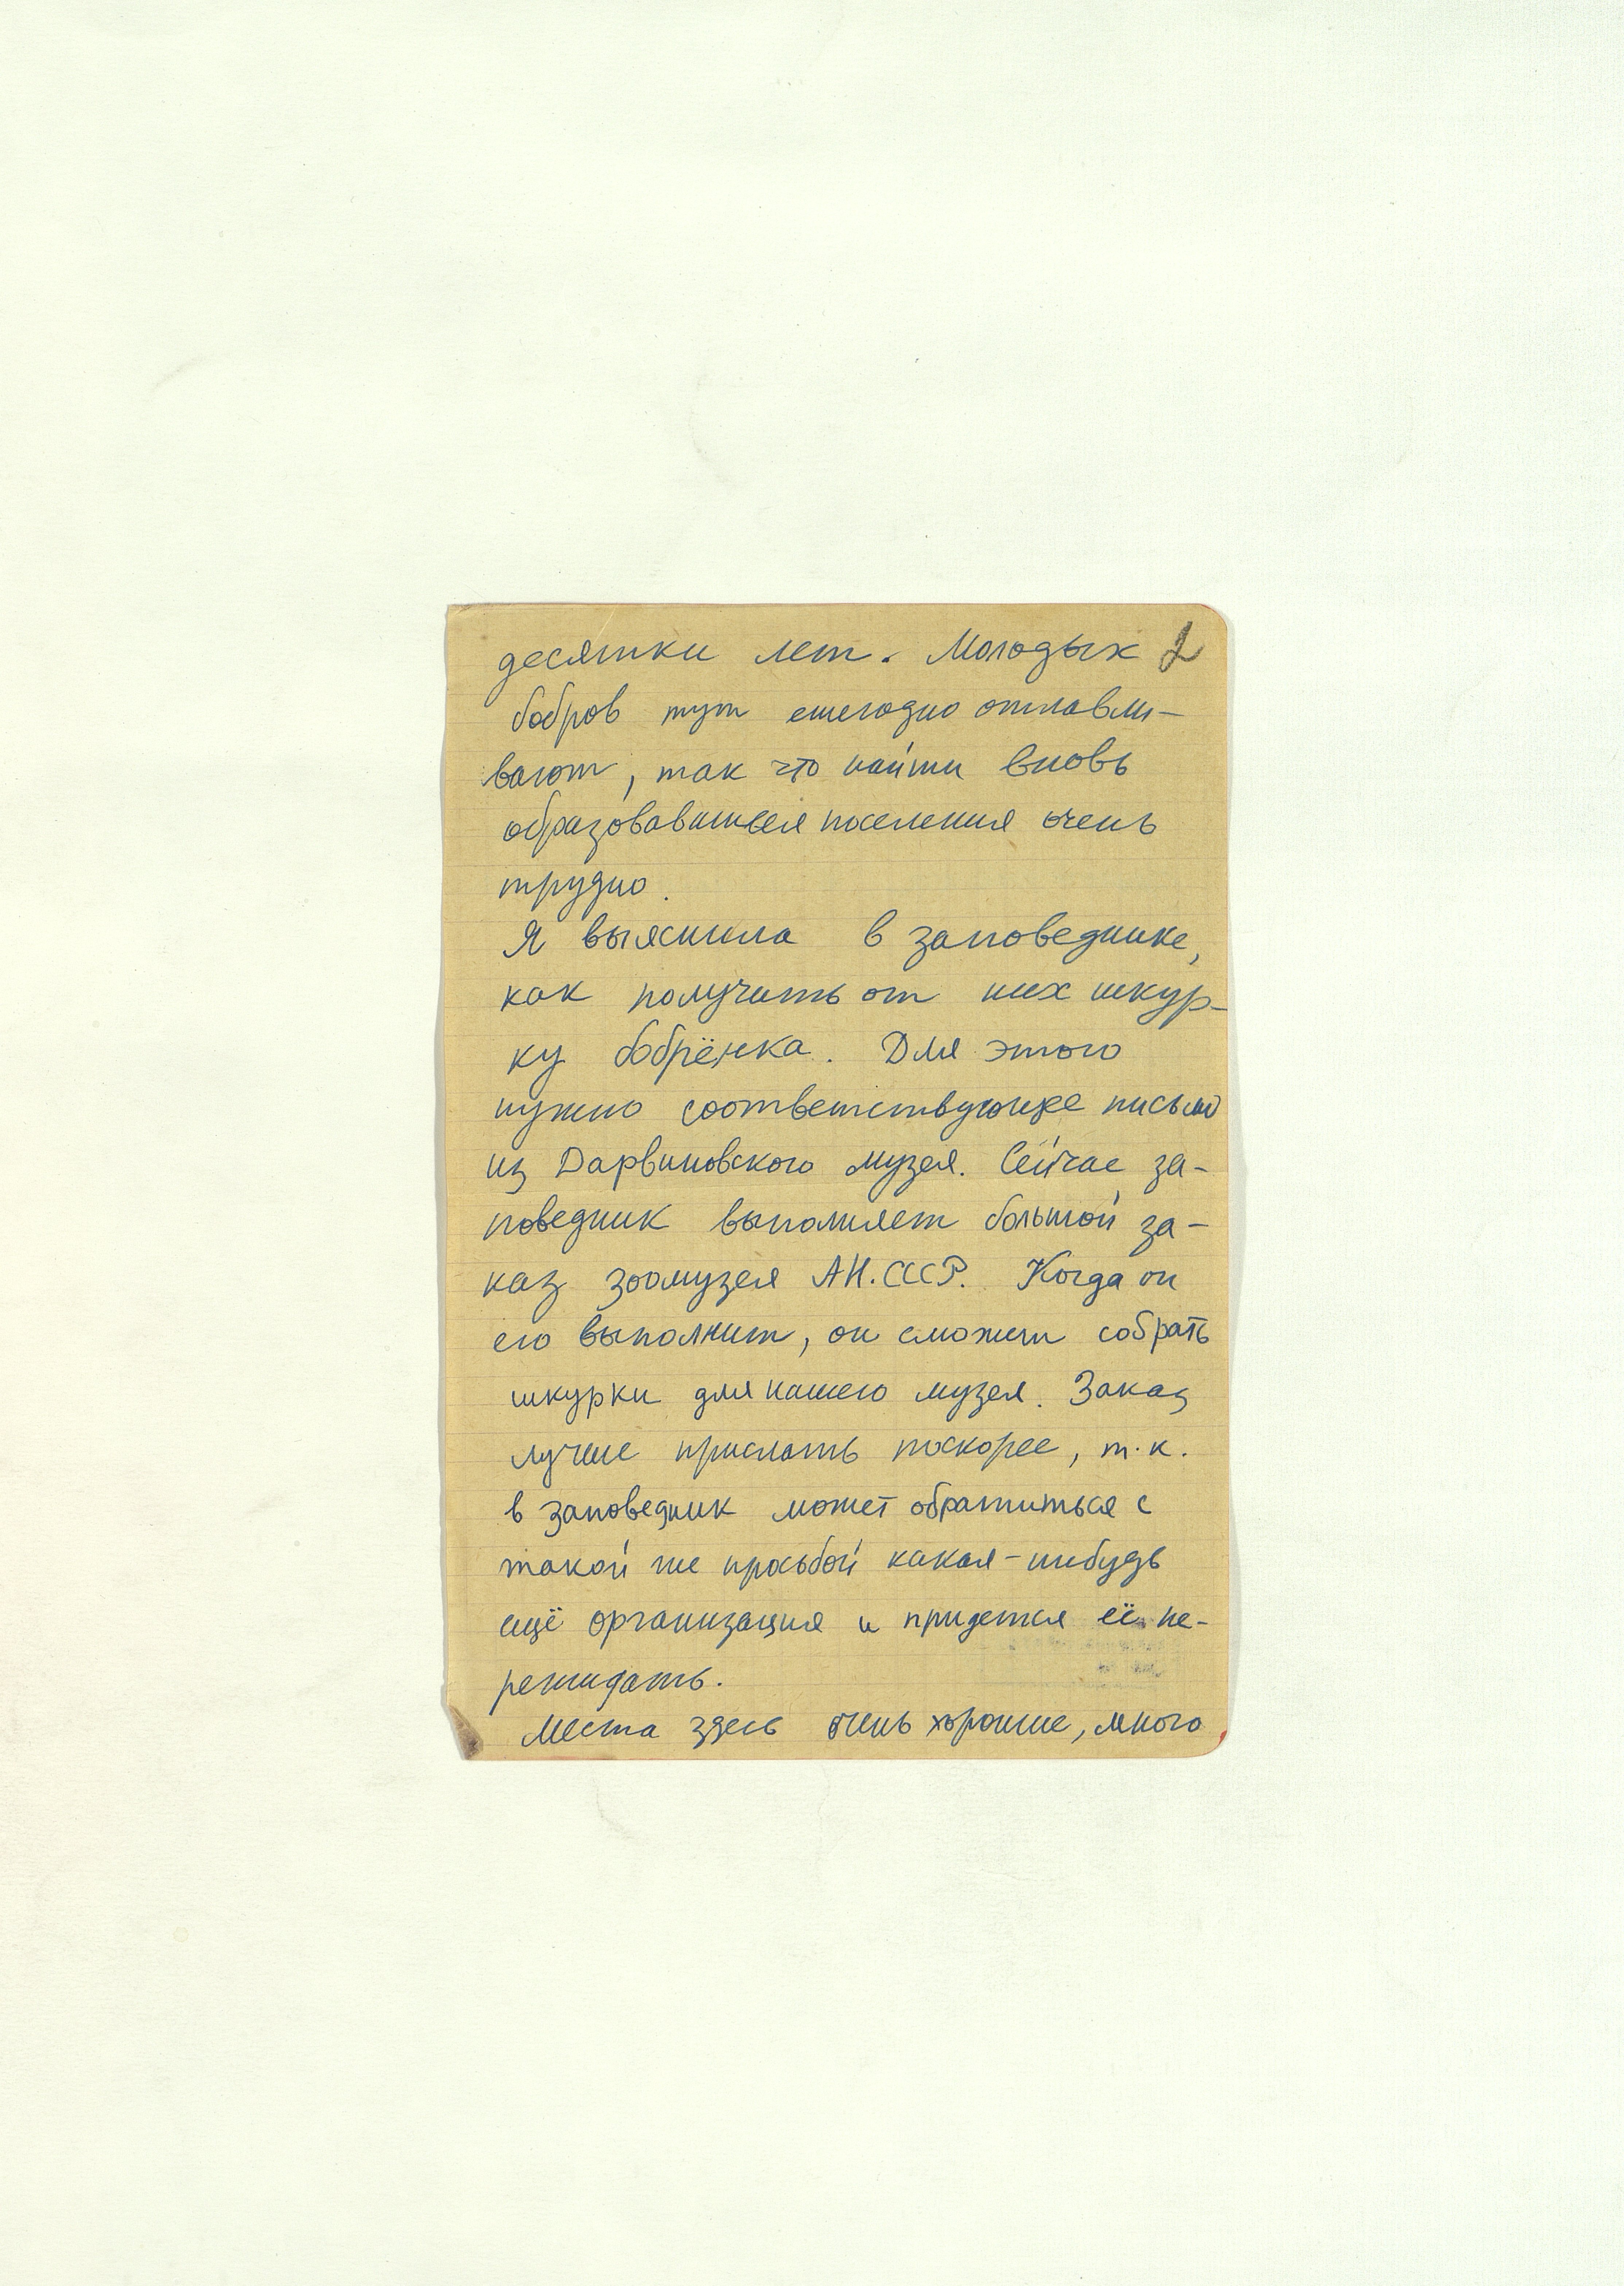 десятки лет. Молодых 2
бобров тут ежегодно отлавли-
вают, так что найти вновь
образовавшееся поселения очень
трудно.
Я выяснила в заповеднике,
как получить от них шкур-
ку бобрёнка. Для этого
нужно соответствующее письмо
из Дарвиновского музея. Сейчас за-
поведник выполняет большой за-
каз зоомузея АН.СССР. Когда он
его выполнит, он сможет собрать
шкурки для нашего музея. Заказ
лучше прислать поскорее, т.к.
в заповедник может обратиться с
такой же просьбой какая-нибудь
ещё организация и придется её пе-
режидать.
Места здесь очень хорошие, много